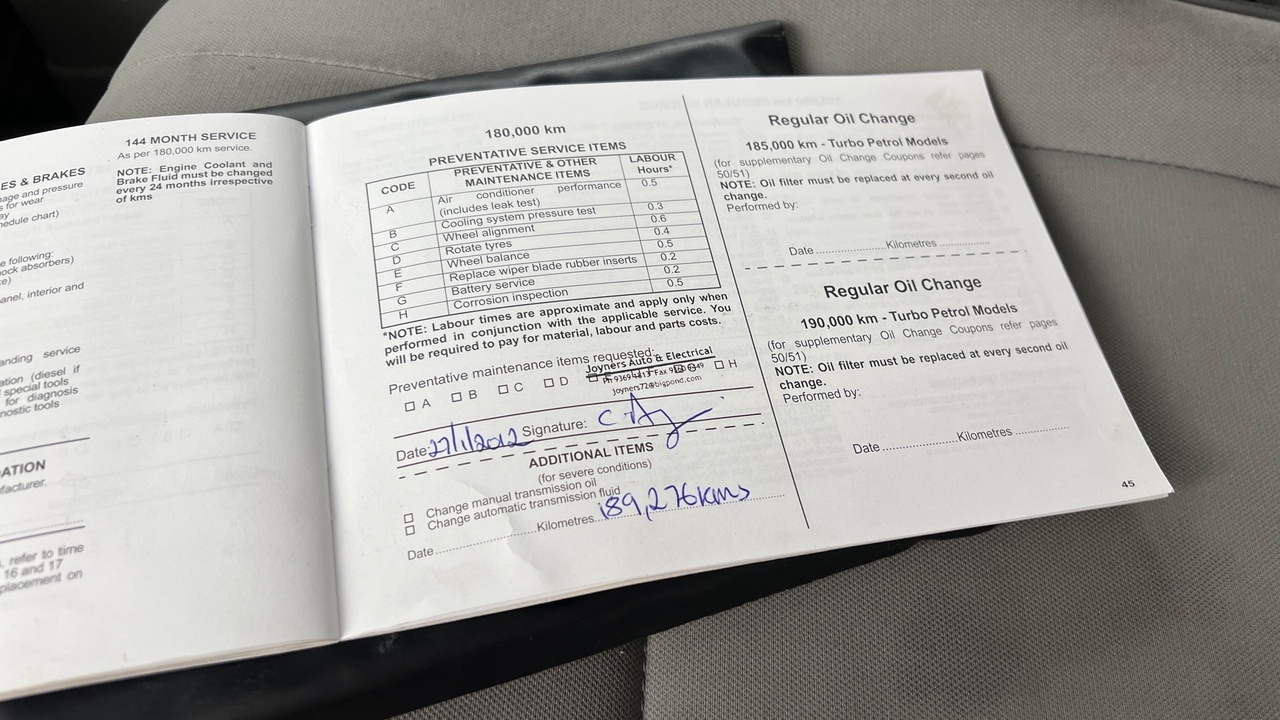 ES & BRAKES
nage and pressure
s for wear
ay
nedule chart)
e following:
ock absorbers)
e)
anel, interior and
anding service
ation (diesel if
special tools
for diagnosis
nostic tools
ATION
facturer.
, refer to time
16 and 17
placement on
144 MONTH SERVICE
As per 180,000 km service.
NOTE: Engine Coolant and
Brake Fluid must be changed
every 24 months irrespective
of kms
180,000 km
PREVENTATIVE SERVICE ITEMS
CODE PREVENTATIVE & OTHER MAINTENANCE ITEMS LABOUR Hours*
A Air conditioner performance (includes leak test) 0.5
B Cooling system pressure test 0.3
C Wheel alignment 0.6
D Rotate tyres 0.4
E Wheel balance 0.5
F Replace wiper blade rubber inserts 0.2
G Battery service 0.2
H Corrosion inspection 0.5
*NOTE: Labour times are approximate and apply only when
performed in conjunction with the applicable service. You
will be required to pay for material, labour and parts costs.
Preventative maintenance items requested:
Joyners Auto & Electrical
A B C D H
joyners72@bigpond.com
Date 27/1/2012 Signature:
ADDITIONAL ITEMS
(for severe conditions)
Change manual transmission oil
Change automatic transmission fluid
Date..............................Kilometres...189,276kms
Regular Oil Change
185,000 km - Turbo Petrol Models
(for supplementary Oil Change Coupons refer pages
50/51)
NOTE: Oil filter must be replaced at every second oil
change.
Performed by:
Date .....................Kilometres ...............
Regular Oil Change
190,000 km - Turbo Petrol Models
(for supplementary Oil Change Coupons refer pages
50/51)
NOTE: Oil filter must be replaced at every second oil
change.
Performed by:
Date .....................Kilometres ...............
45